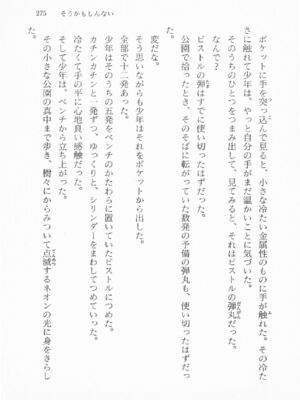 275 そうかもしんない
ポケットに手を突っ込んで見ると、小さな冷たい金属性のものに手が触れた。その冷た
さに触れて少年は、やっと自分の手がまだ温かいことに気づいた。
そのうちのひとつをつまみ出して、見てみると、それはピストルの弾丸だった。
なんで？
ピストルの弾はすでに使い切ったはずだった。
公園で拾ったとき、そのそばに転がっていた数発の予備の弾丸も、使い切ったはずだっ
た。
変だな。
そう思いながらも少年はそれをポケットから出した。
全部で十二発あった。
少年はそのうちの五発をベンチのかたわらに置いていたピストルにつめた。
カチンカチンと一発ずつ、ゆっくりと、シリンダーをまわしてつめていった。
冷たくて手の平に心地良い感触だった。
そして少年は、ベンチから立ち上がった。
その小さな公園の真中まで歩き、樹々にからみついて点滅するネオンの光に身をさらし
た。